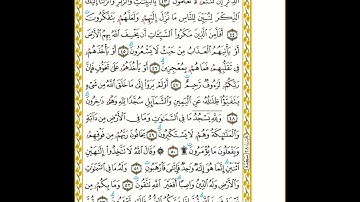 الذِّكْرِ إِن كُنتُمْ لَا تَعْلَمُونَ ٤٣ بِالْبَيِّنَاتِ وَالزُّبُرِ وَأَنزَلْنَا إِلَيْكَ
الذِّكْرَ لِتُبَيِّنَ لِلنَّاسِ مَا نُزِّلَ إِلَيْهِمْ وَلَعَلَّهُمْ يَتَفَكَّرُونَ
٤٤ أَفَأَمِنَ الَّذِينَ مَكَرُوا السَّيِّئَاتِ أَن يَخْسِفَ اللَّهُ بِهِمُ الْأَرْضَ
أَوْ يَأْتِيَهُمُ الْعَذَابُ مِنْ حَيْثُ لَا يَشْعُرُونَ ٤٥ أَوْ يَأْخُذَهُمْ
فِي تَقَلُّبِهِمْ فَمَا هُم بِمُعْجِزِينَ ٤٦ أَوْ يَأْخُذَهُمْ عَلَىٰ تَخَوُّفٍ فَإِنَّ
رَبَّكُمْ لَرَءُوفٌ رَّحِيمٌ ٤٧ أَوَلَمْ يَرَوْا إِلَىٰ مَا خَلَقَ اللَّهُ مِن شَيْءٍ
يَتَفَيَّؤُا ظِلَالُهُ عَنِ الْيَمِينِ وَالشَّمَائِلِ سُجَّدًا لِّلَّهِ وَهُمْ دَاخِرُونَ
٤٨ وَلِلَّهِ يَسْجُدُ مَا فِي السَّمَاوَاتِ وَمَا فِي الْأَرْضِ مِن دَابَّةٍ
وَالْمَلَائِكَةُ وَهُمْ لَا يَسْتَكْبِرُونَ ٤٩ يَخَافُونَ رَبَّهُم مِّن فَوْقِهِمْ
وَيَفْعَلُونَ مَا يُؤْمَرُونَ ۩ ٥٠ وَقَالَ اللَّهُ لَا تَتَّخِذُوا إِلَٰهَيْنِ
اثْنَيْنِ إِنَّمَا هُوَ إِلَٰهٌ وَاحِدٌ فَإِيَّايَ فَارْهَبُونِ ٥١ وَلَهُ مَا فِي السَّمَاوَاتِ
وَالْأَرْضِ وَلَهُ الدِّينُ وَاصِبًا أَفَغَيْرَ اللَّهِ تَتَّقُونَ ٥٢ وَمَا بِكُم مِّن